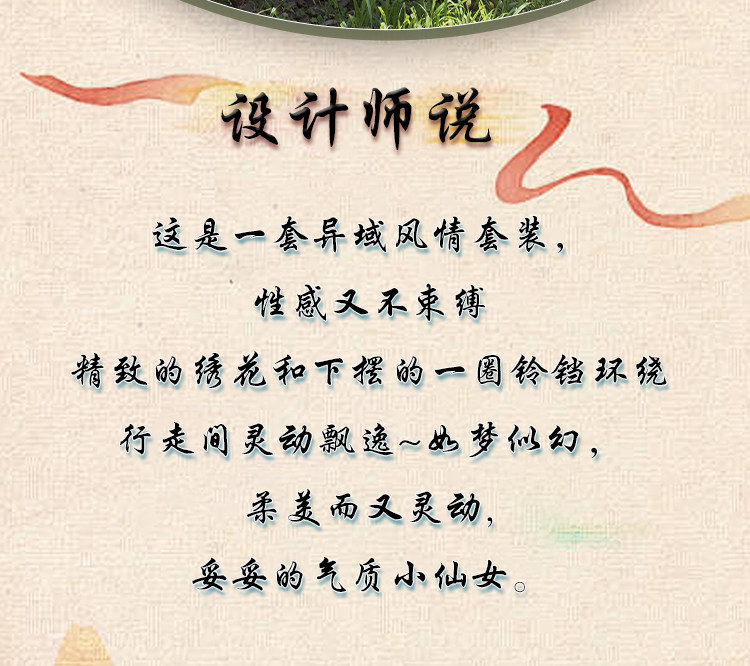 设计师说
这是一套异域风情套装，
性感又不束缚
精致的绣花和下摆的一圈铃铛环绕
行走间灵动飘逸~如梦似幻，
柔美而又灵动，
妥妥的气质小仙女。